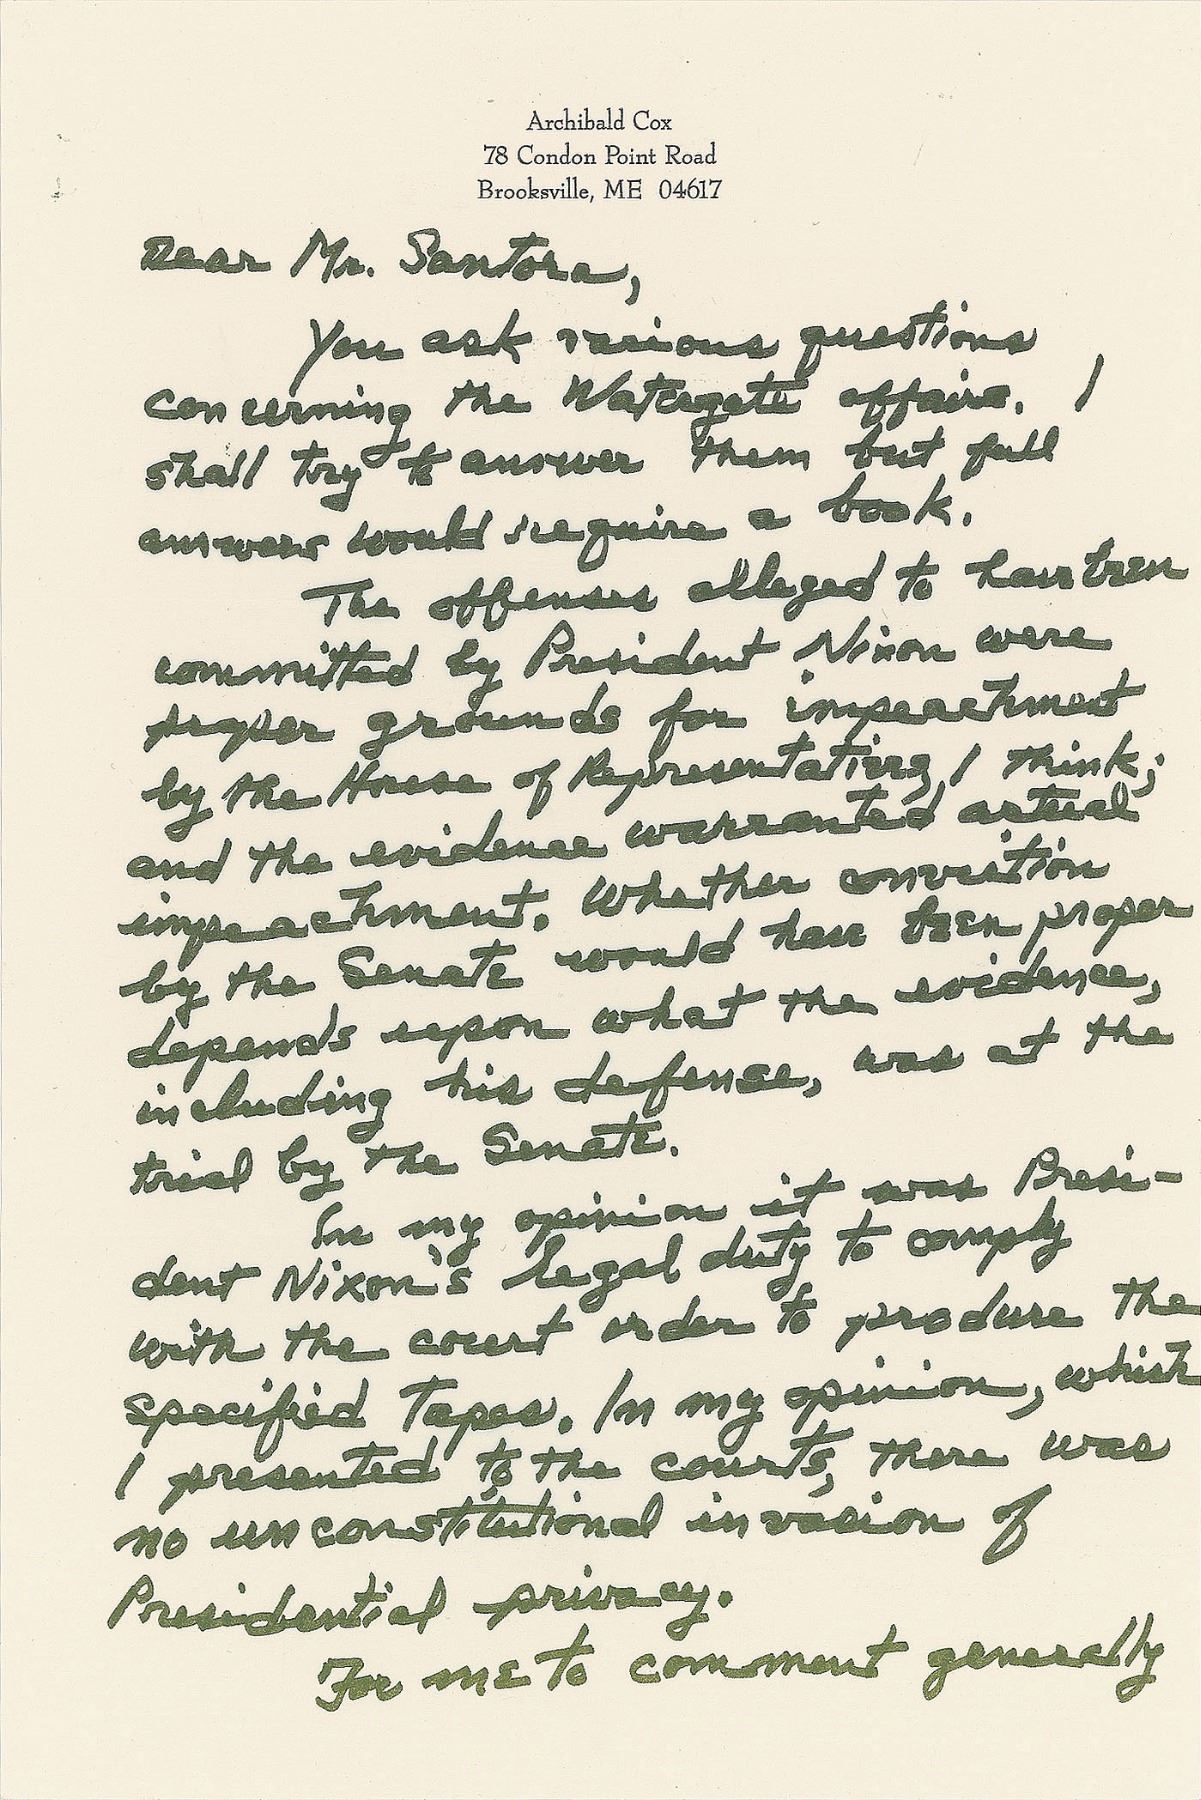 Archibald Cox
78 Condon Point Road
Brooksville, ME 04617
Dear Mr. Santora,
You ask various questions
concerning the Watergate affairs. I
shall try to answer them but full
answers would require a book.
The offenses alleged to have been
committed by President Nixon were
proper grounds for impeachment
by the House of Representatives, I think;
and the evidence warranted actual
impeachment. Whether conviction
by the Senate would have been proper
depends upon what the evidence,
including his defense, was at the
trial by the Senate.
In my opinion it was Presi-
dent Nixon's legal duty to comply
with the court order to produce the
specified Tapes. In my opinion, which
I presented to the courts, there was
no unconstitutional invasion of
Presidential privacy.
For me to comment generally